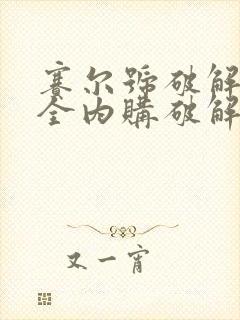 赛尔號破解
全内購破解
又一宵